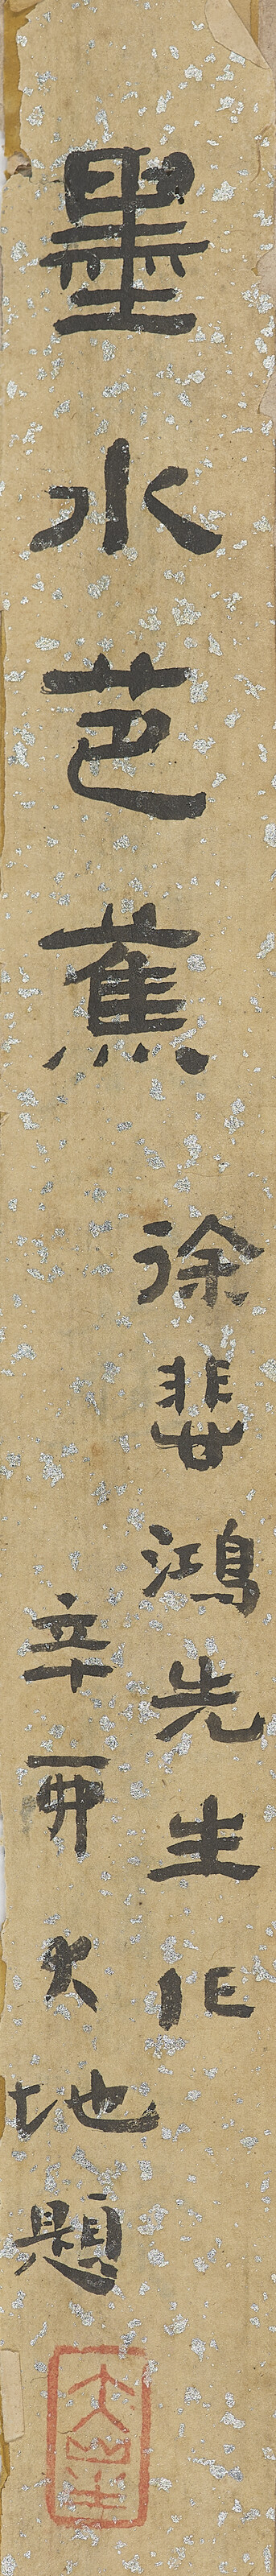 墨水芭蕉
徐悲鴻先生作
辛丣大地題